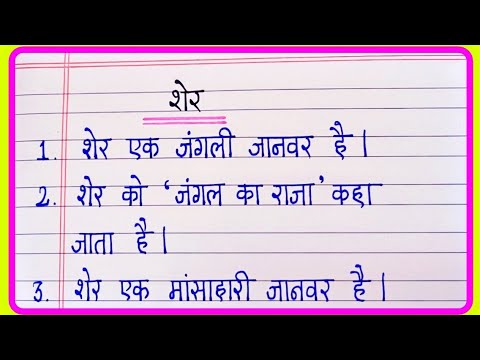 शेर
1. शेर एक जंगली जानवर है।
2. शेर को ‘जंगल का राजा’ कहा
जाता है।
3. शेर एक मांसाहारी जानवर है।